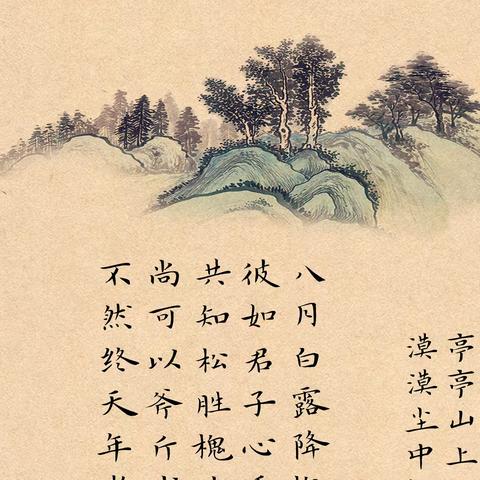 亭亭山上
漠漠尘中
八月白露降
彼如君子心
共知松胜槐
尚可以斧斤
不然终天年